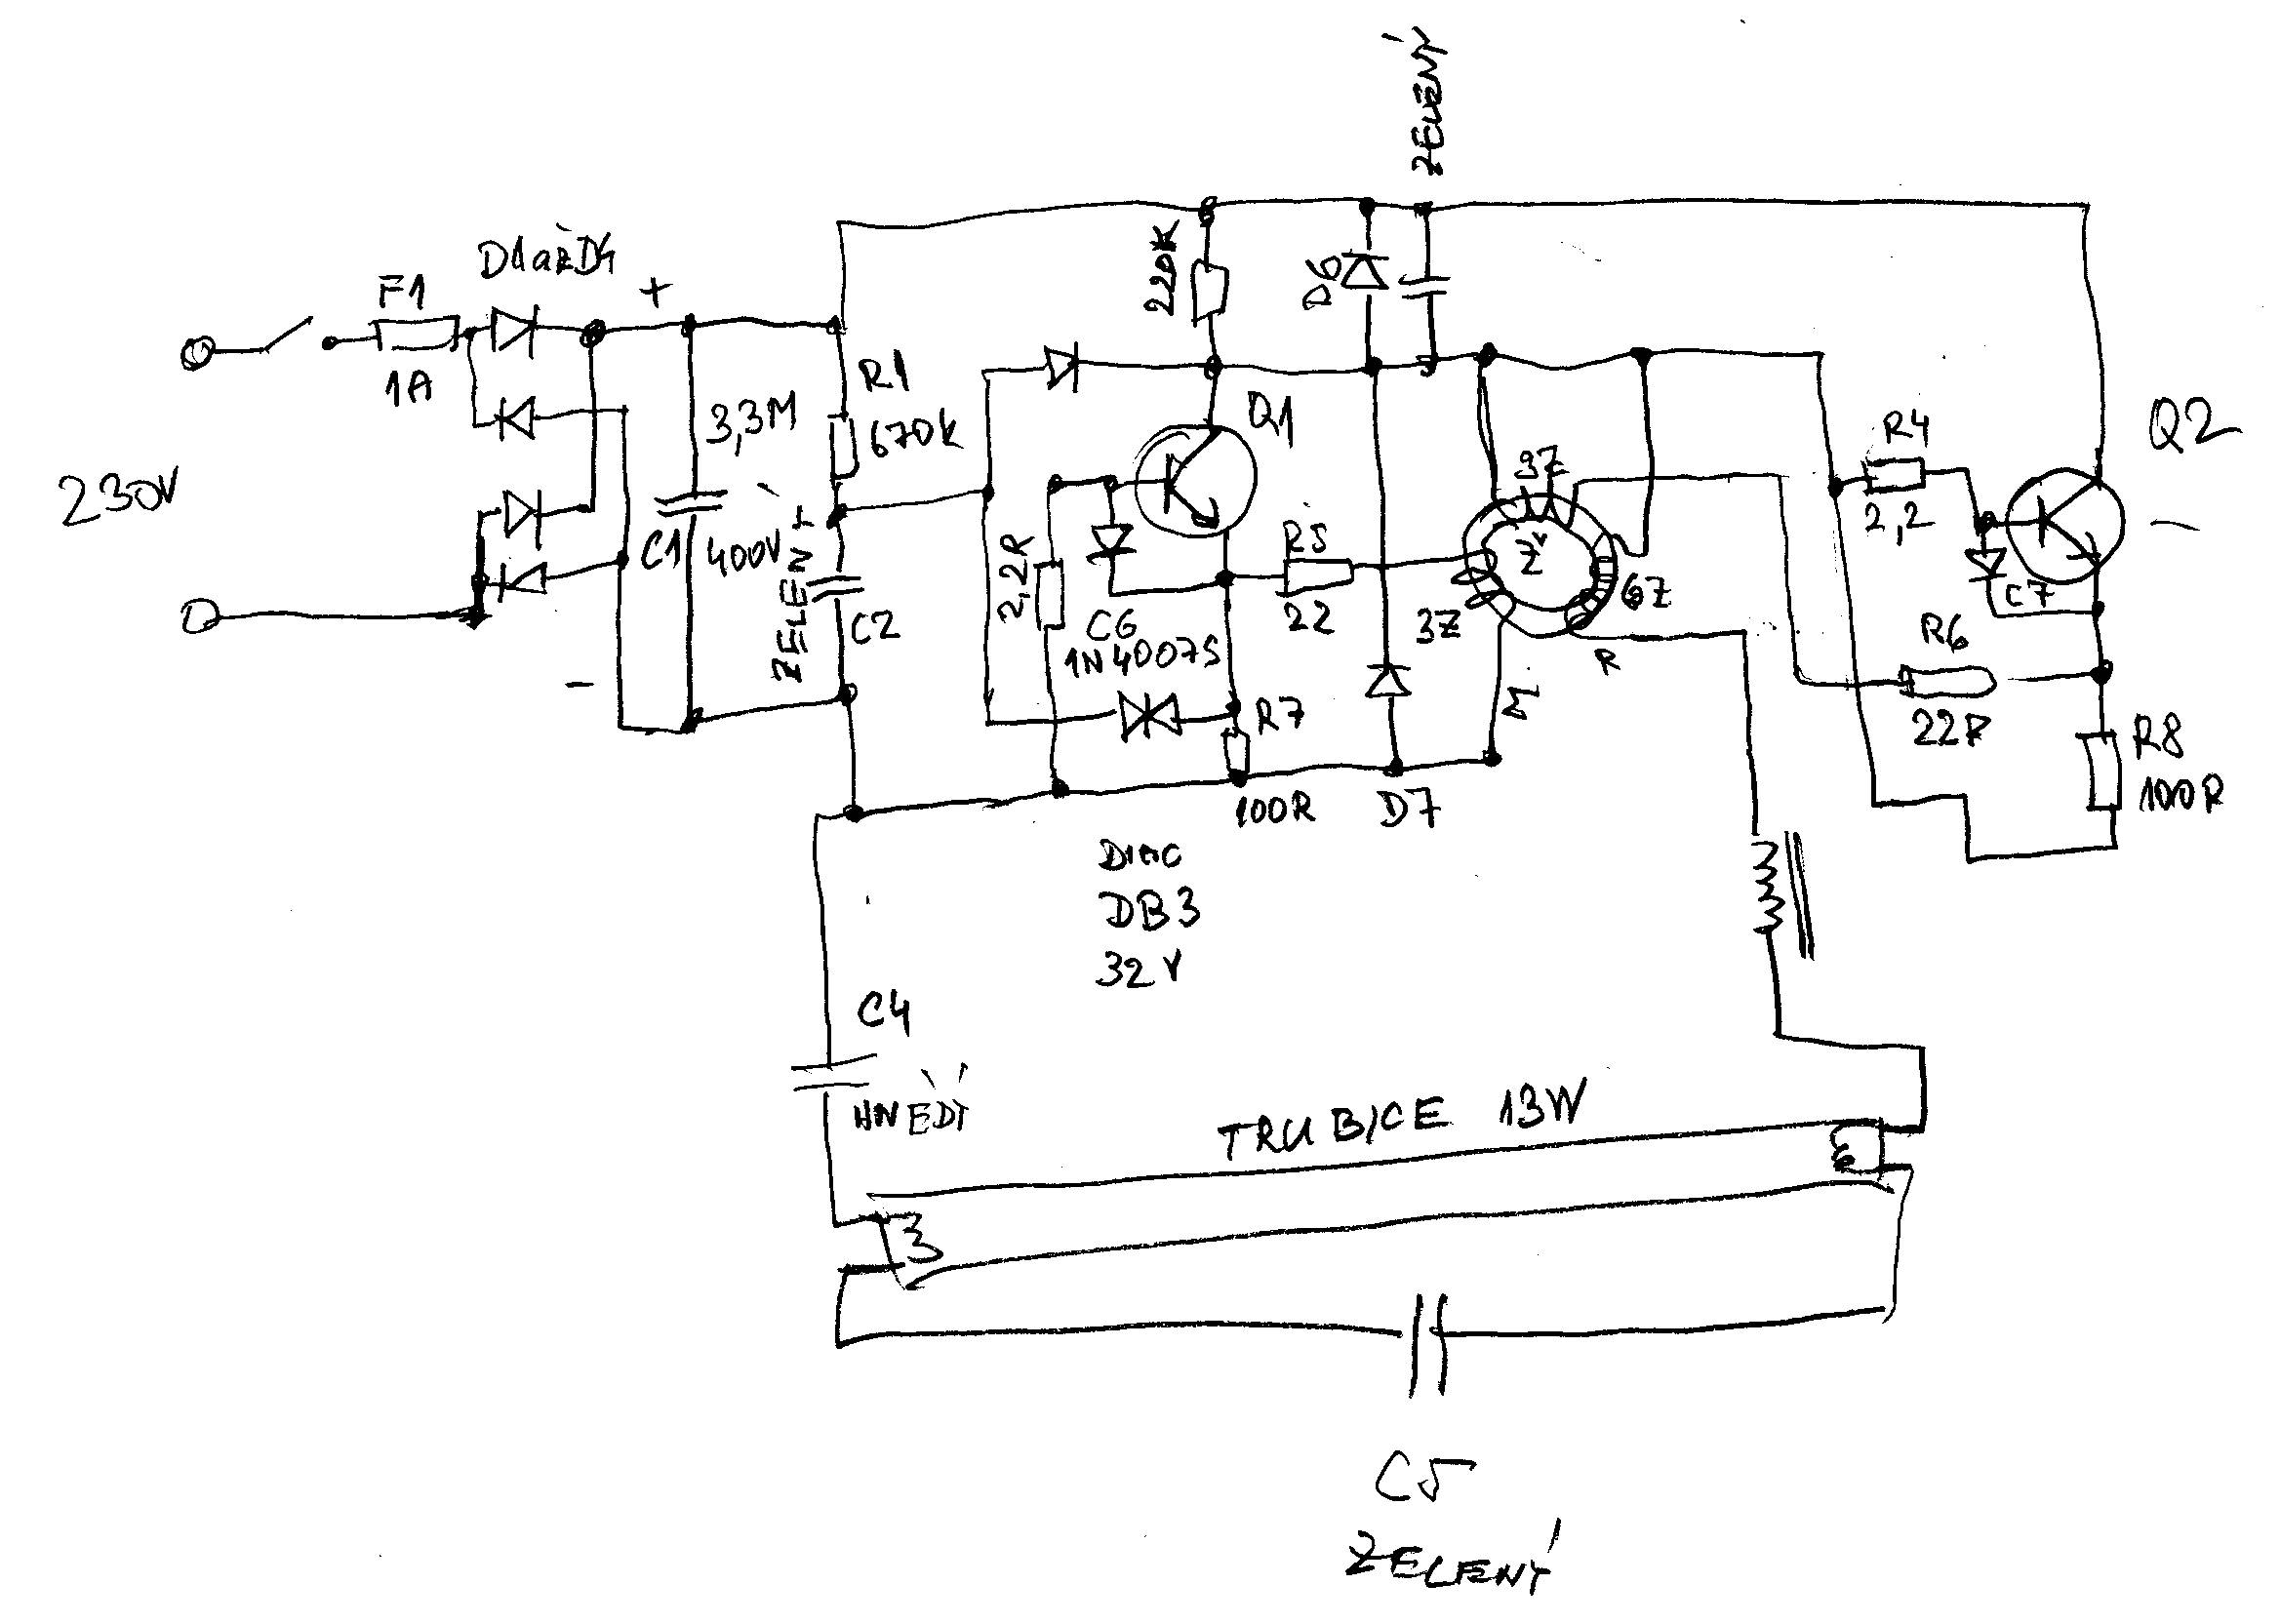 ZELENÝ
D1 až D4
F1
1A
+
230V
3,3M
C1
400V
-
R1
670K
ZELENÝ
+
C2
220K
D6
Q1
2,2R
C6
1N4007S
R5
22
R7
100R
D7
DIAC
DB3
32V
3Z
Ž
6Z
3Z
R
M
R4
2,2
Q2
C7
R6
22R
R8
100R
C4
HNĚDÝ
TRUBICE 13W
C5
ZELENÝ